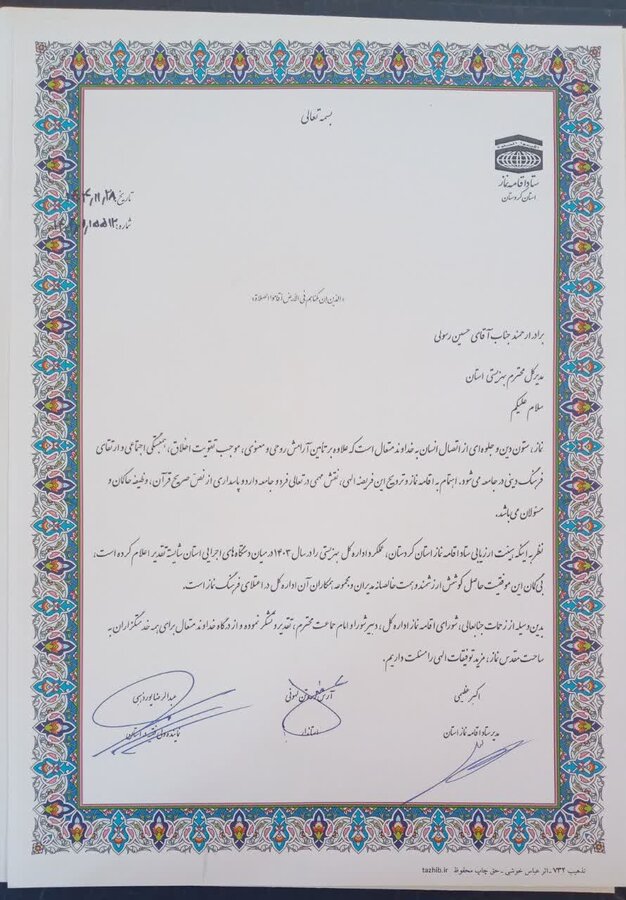 بسمه تعالی
ستاد اقامه نماز
استان کردستان
تاریخ:
شماره:
«الذین ان مکناهم فی الارض اقاموا الصلاة»
برادر ارجمند جناب آقای حسین رسولی
مدیرکل محترم بهزیستی استان
سلام علیکم
نماز، ستون دین و جلوه‌ای از اتصال انسان به خداوند متعال است که علاوه بر تامین آرامش روحی و معنوی، موجب تقویت اخلاق، همبستگی اجتماعی و ارتقای
فرهنگ دینی در جامعه می‌شود. اهتمام به اقامه نماز و ترویج این فریضه الهی، نقش مهمی در تعالی فرد و جامعه دارد و پاسداری از نص صریح قرآن، وظیفه حاکمان و
مسئولان می‌باشد.
نظر به اینکه هیئت ارزیابی ستاد اقامه نماز استان کردستان، عملکرد اداره کل بهزیستی را در سال ۱۴۰۳ در میان دستگاه‌های اجرایی استان شایسته تقدیر اعلام کرده است،
بی‌گمان این موفقیت حاصل کوشش ارزشمند و همت خالصانه مدیران و مجموعه همکاران آن اداره کل در اعتلای فرهنگ نماز است.
بدین وسیله از زحمات جنابعالی، شورای اقامه نماز اداره کل، دبیر شورا و امام جماعت محترم، تقدیر و تشکر نموده و از درگاه خداوند متعال برای همه خدمتگزاران به
ساحت مقدس نماز، مزید توفیقات الهی را مسئلت داریم.
اکبر عظیمی
مدیر ستاد اقامه نماز استان
آرش لهونی
استاندار
عبدالرضا پورذهبی
نماینده ولی فقیه در استان
تذهیب ۷۳۲ ـ اثر عباس خوشی ـ حق چاپ محفوظ tazhib.ir